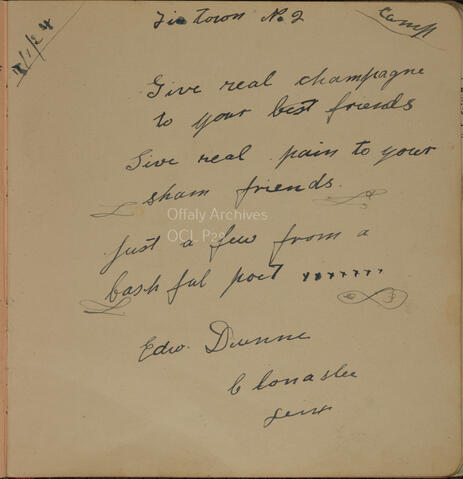 Tin town No. 2
Camp
7/1/24
Give real champagne
to your best friends
Give real pain to your
sham friends.
Offaly Archives
Just a few from a
bashful poet xxxxxxx
Edw. Dunne
Clonaslee
Leix